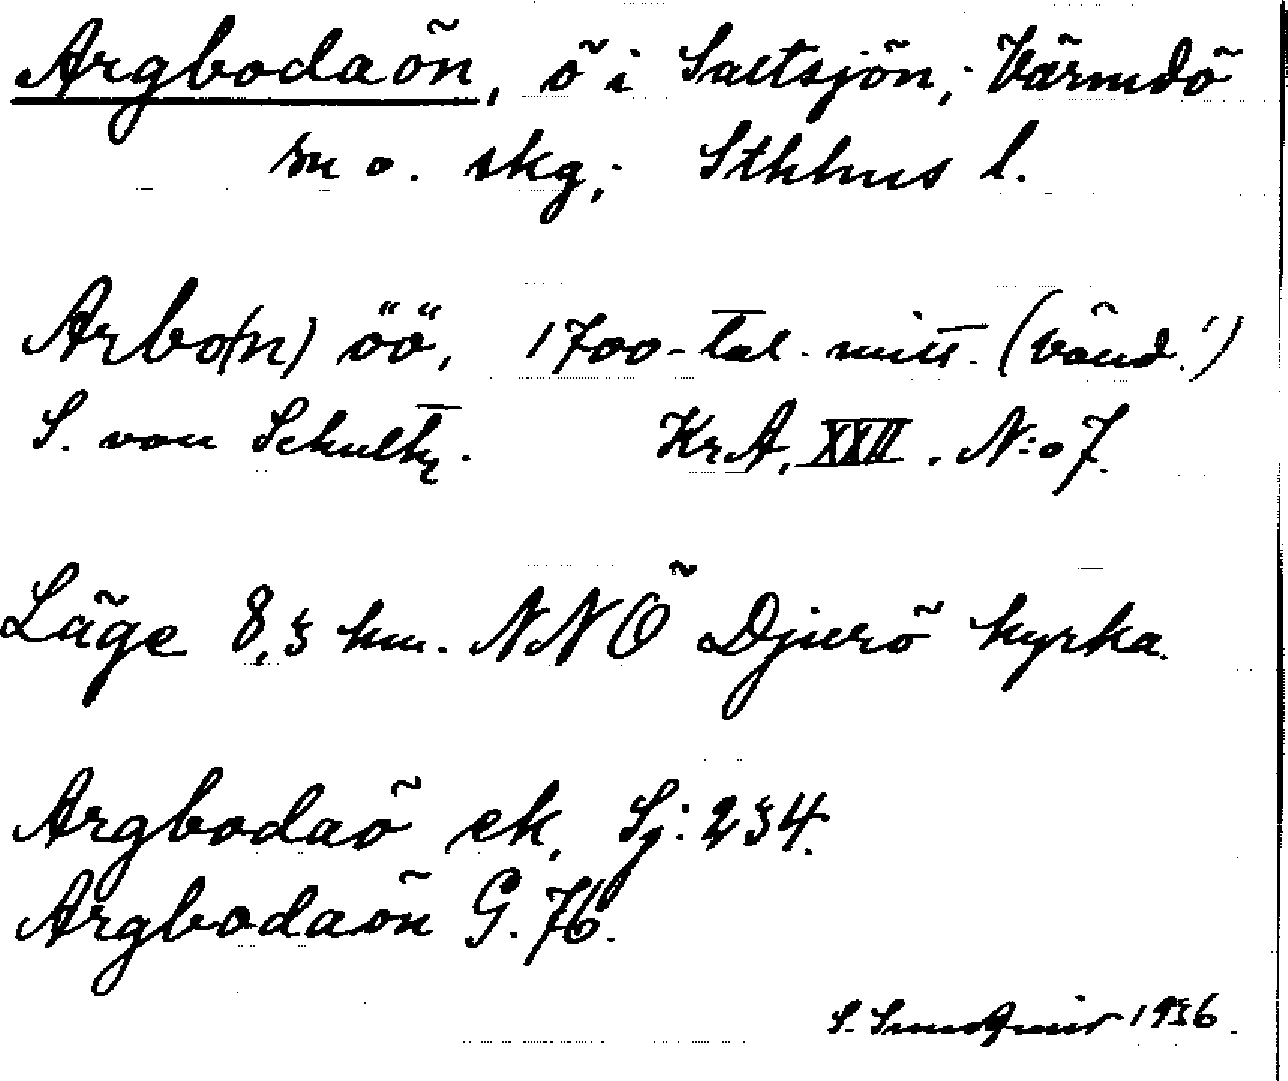 Argbodaön, ö i Saltsjön, Värmdö
sn o. skg, Sthlms l.
Arbo(n) öö, 1700-tal. mitt. (vänd!)
S. von Schultz. KrA, XXII. N:o 7.
Läge 8,5 km. NNÖ Djurö kyrka.
Argbodaö ek. Sj: 234.
Argbodaön G. 76.
S. 1936.